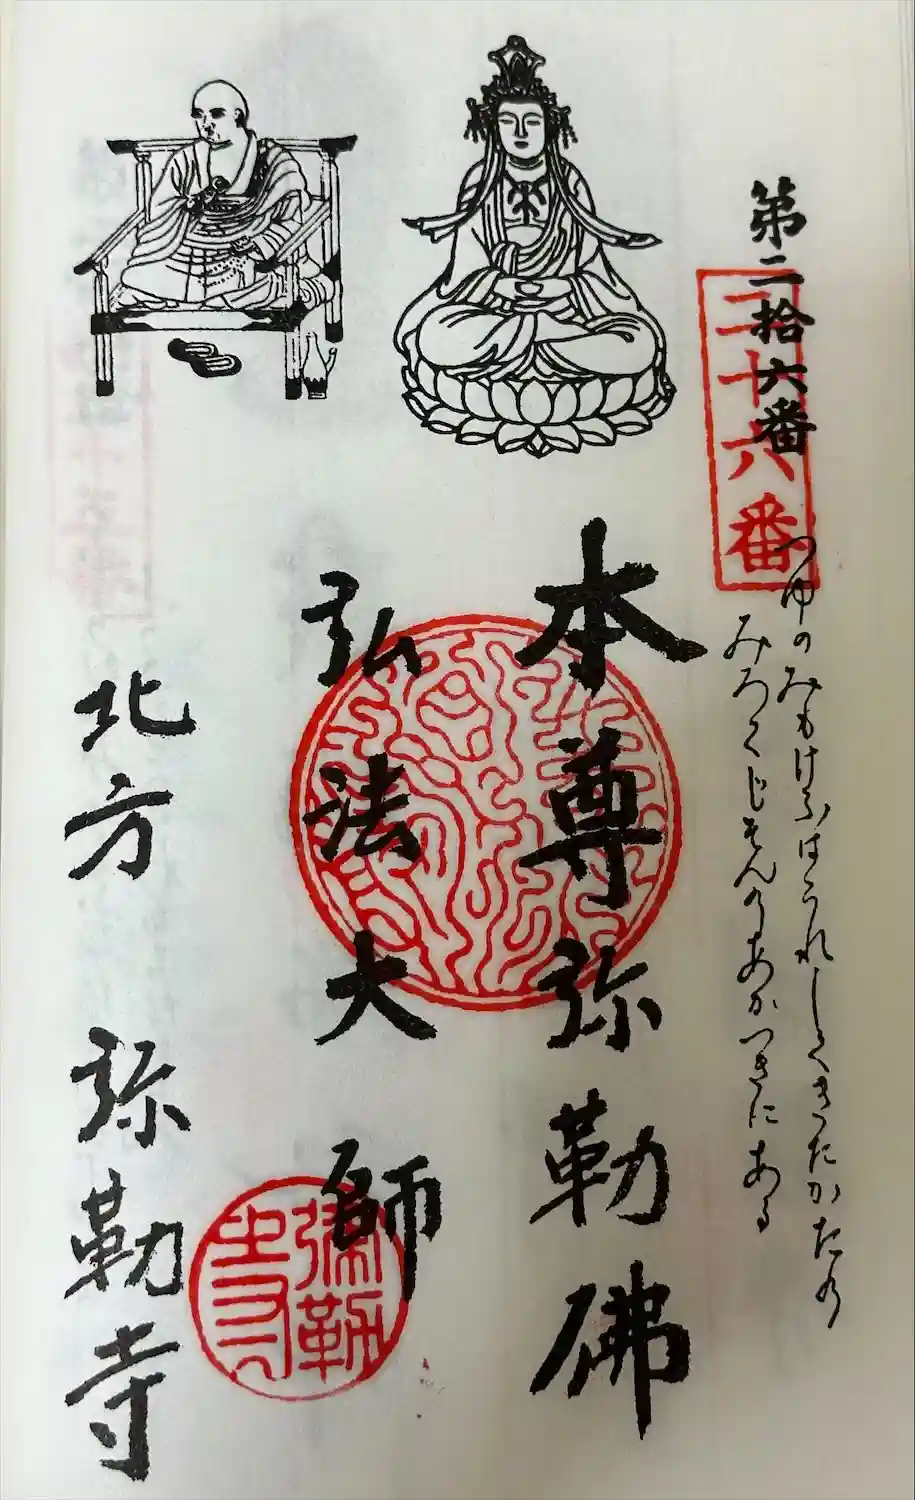 第二拾六番
二十六番
つゆのみもけふはうれしくきたかたの
みろくじそんのあかつきにあふ
本尊弥勒佛
弘法大師
北方 弥勒寺
弥勒
寺印